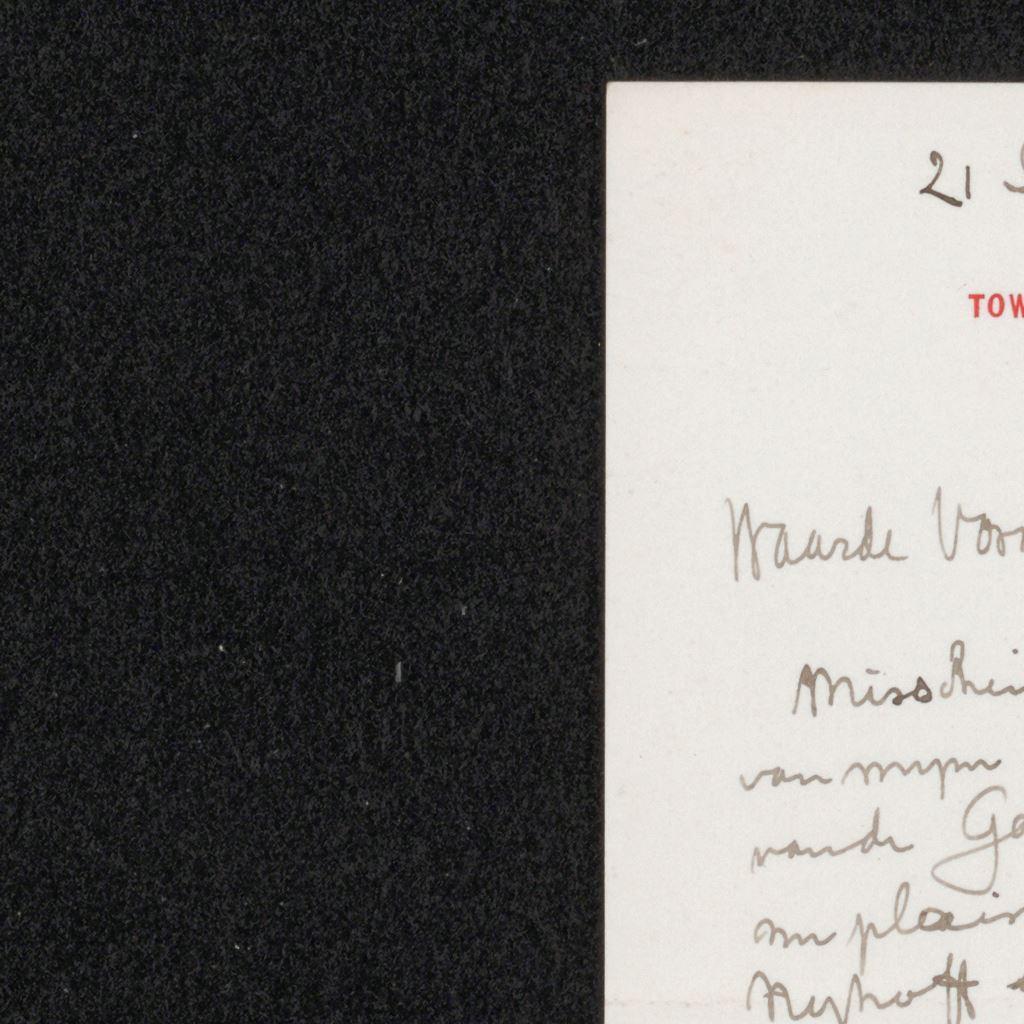 21
TOW
Waarde Voor
Misschi
van mijn
van de Ga
en plein
Nijhoff